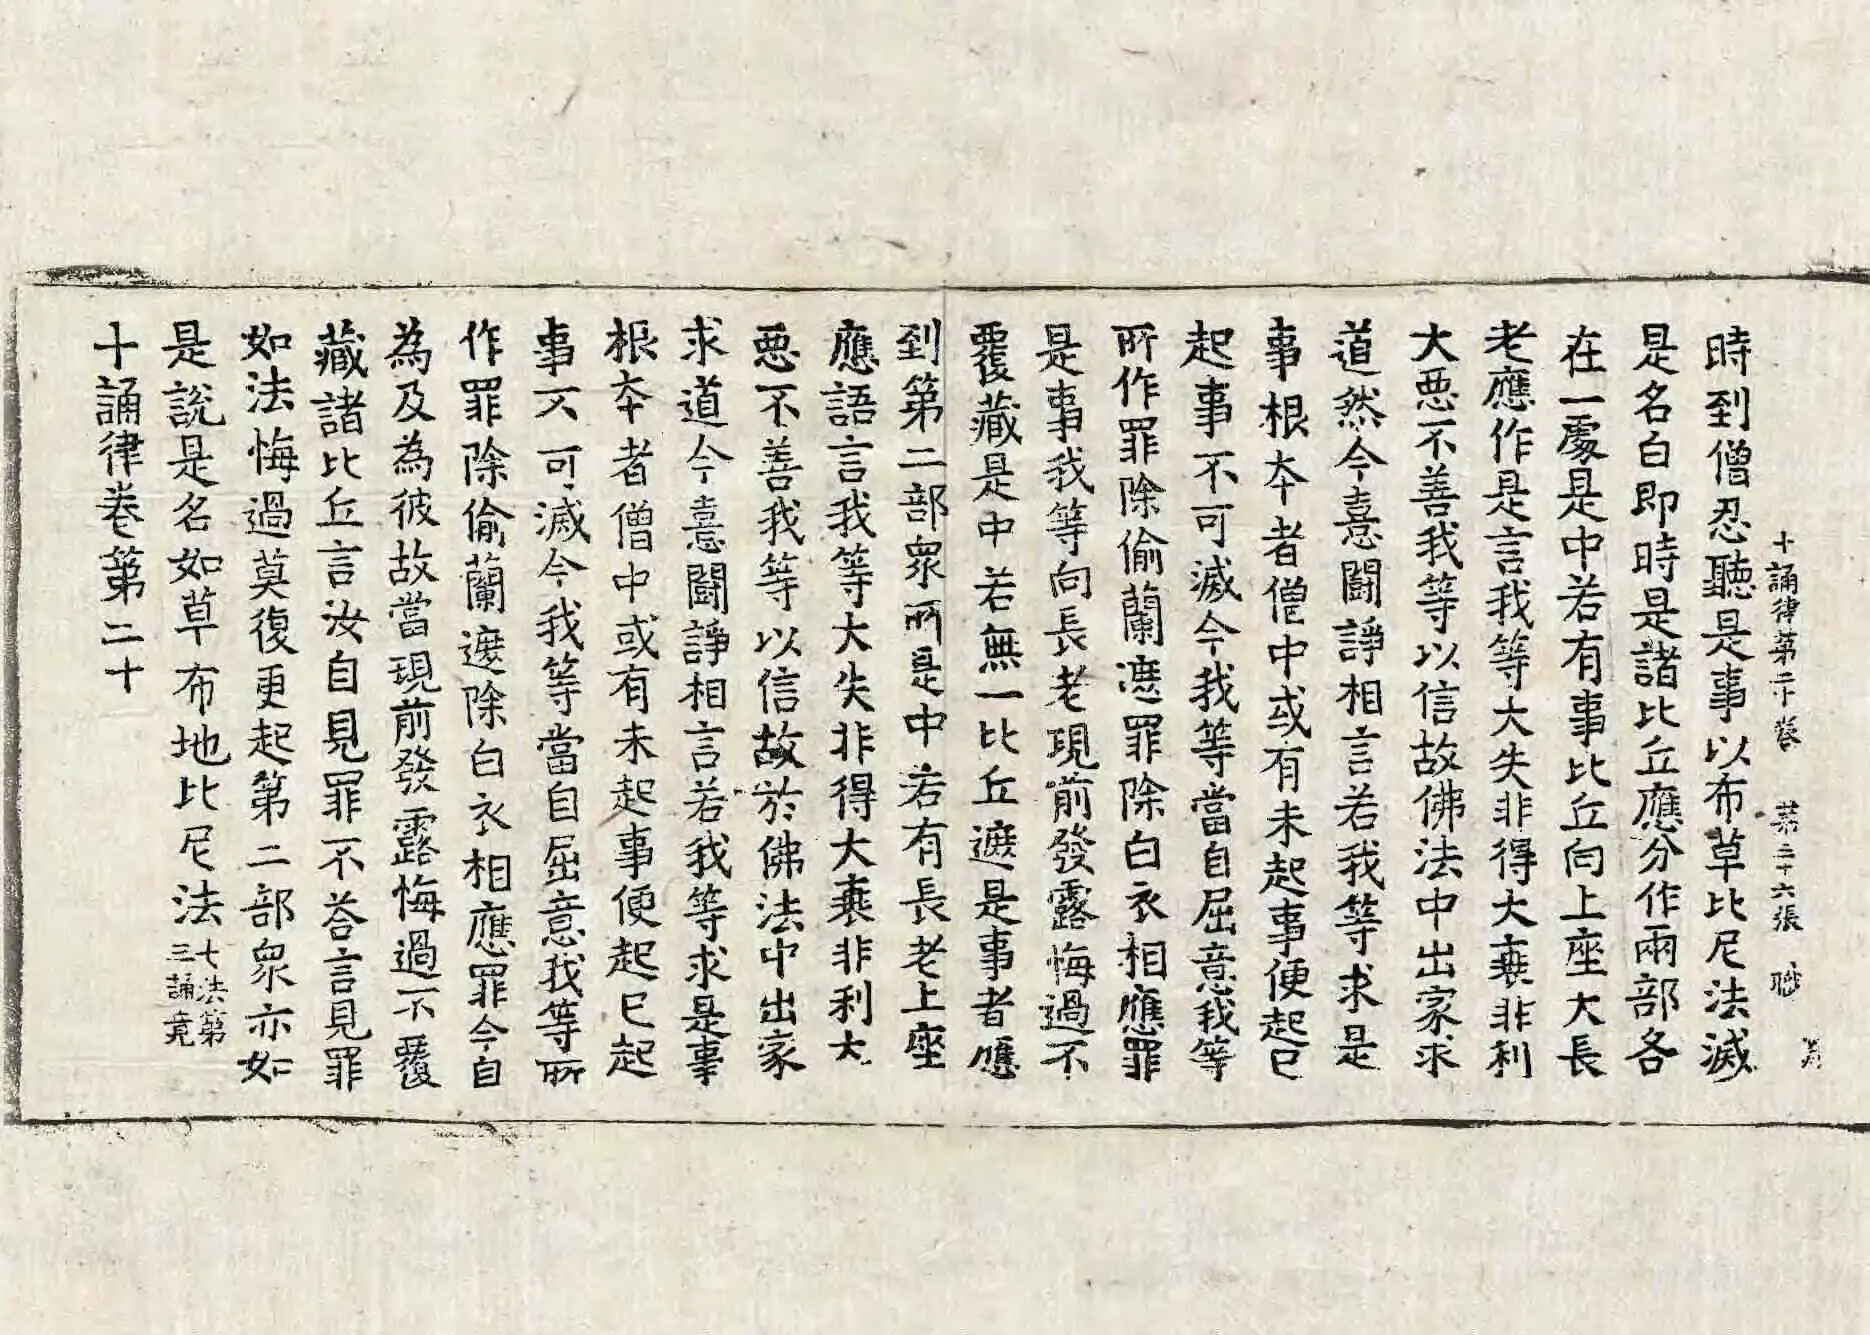 十誦律第二十卷　第三十六張　職
時到僧忍聽是事以布草比尼法滅
是名白即時是諸比丘應分作兩部各
在一處是中若有事比丘向上座大長
老應作是言我等大失非得大衰非利
大惡不善我等以信故佛法中出家求
道然今憙鬪諍相言若我等求是
事根本者僧中或有未起事便起已
起事不可滅今我等當自屈意我等
所作罪除偷蘭遮罪除白衣相應罪
是事我等向長老現前發露悔過不
覆藏是中若無一比丘遮是事者應
到第二部眾所是中若有長老上座
應語言我等大失非得大衰非利大
惡不善我等以信故於佛法中出家
求道今憙鬪諍相言若我等求是事
根本者僧中或有未起事便起已起
事不可滅今我等當自屈意我等所
作罪除偷蘭遮除白衣相應罪今自
為及為彼故當現前發露悔過不覆
藏諸比丘言汝自見罪不荅言見罪
如法悔過莫復更起第二部眾亦如
是說是名如草布地比尼法七法第
三誦竟
十誦律卷第二十